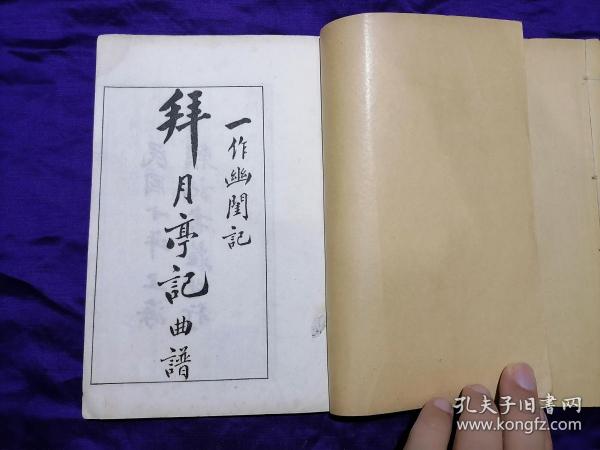 一作幽閨記
拜月亭記曲譜
孔夫子旧书网
www.kongfz.com